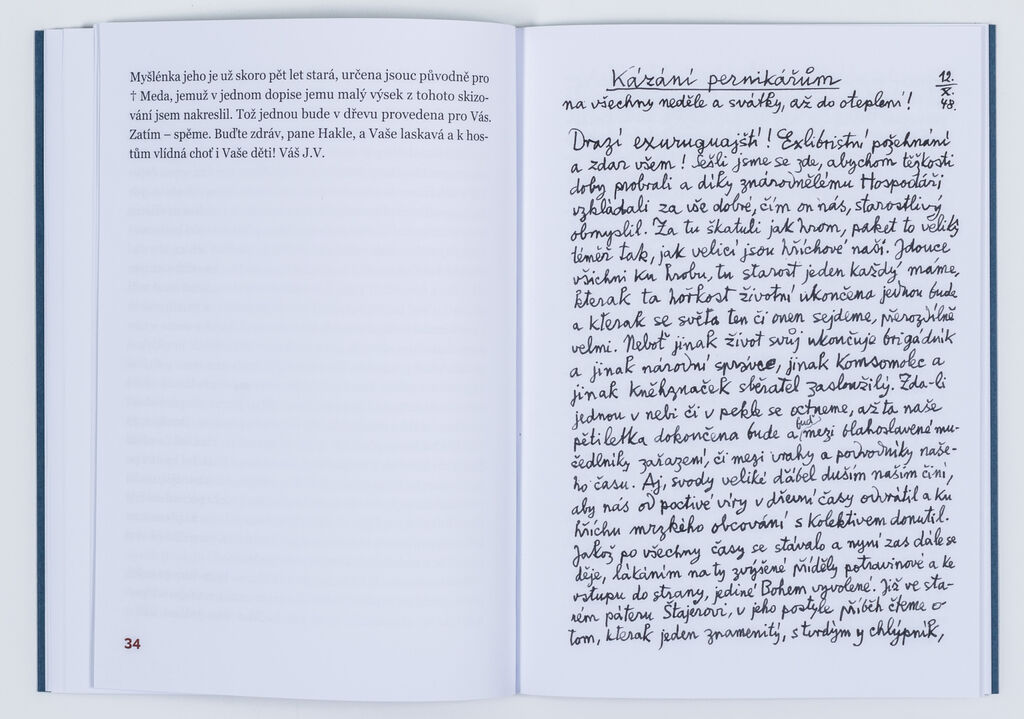 Myšlénka jeho je už skoro pět let stará, určena jsouc původně pro
† Meda, jemuž v jednom dopise jemu malý výsek z tohoto skizo-
vání jsem nakreslil. Tož jednou bude v dřevu provedena pro Vás.
Zatím – spěme. Buďte zdráv, pane Hakle, a Vaše laskavá a k hos-
tům vlídná choť i Vaše děti! Váš J.V.
34
Kázání pernikářům
12.
X.
48.
na všechny neděle a svátky, až do oteplení!
Drazí exuruguajští! Exlibristní požehnání
a zdar všem! Sešli jsme se zde, abychom těžkosti
doby probrali a díky znárodnělému Hospodáři
vzkládali za vše dobré, čím on nás, starostlivý
obmyslil. Za tu škatuli jak hrom, paket to veliký
téměř tak, jak velicí jsou hříchové naši. Jdouce
všichni ku hrobu, tu starost jeden každý máme,
kterak ta hořkost životní ukončena jednou bude
a kterak se světa ten či onen sejdeme, přerozdílně
velmi. Neboť jinak život svůj ukončuje brigádník
a jinak národní správce, jinak Komsomolec a
jinak Kněhznaček sběratel zasloužilý. Zda-li
jednou v nebi či v pekle se octneme, až ta naše
pětiletka dokončena bude a buď mezi blahoslavené mu-
čedlníky zařazení, či mezi vrahy a podvodníky naše-
ho času. Aj, svody veliké ďábel duším našim činí,
aby nás od poctivé víry v dřevní časy odvrátil a ku
hříchu mrzkého obcování s kolektivem donutil.
Jakož po všechny časy se stávalo a nyní zas dále se
děje, lákáním na ty zvýšené příděly potravinové a ke
vstupu do strany, jedině Bohem vyvolené. Již ve sta-
rém páteru Štajerovi, v jeho postyle příběh čteme o
tom, kterak jeden znamenitý, s tvrdým y chlýpník,